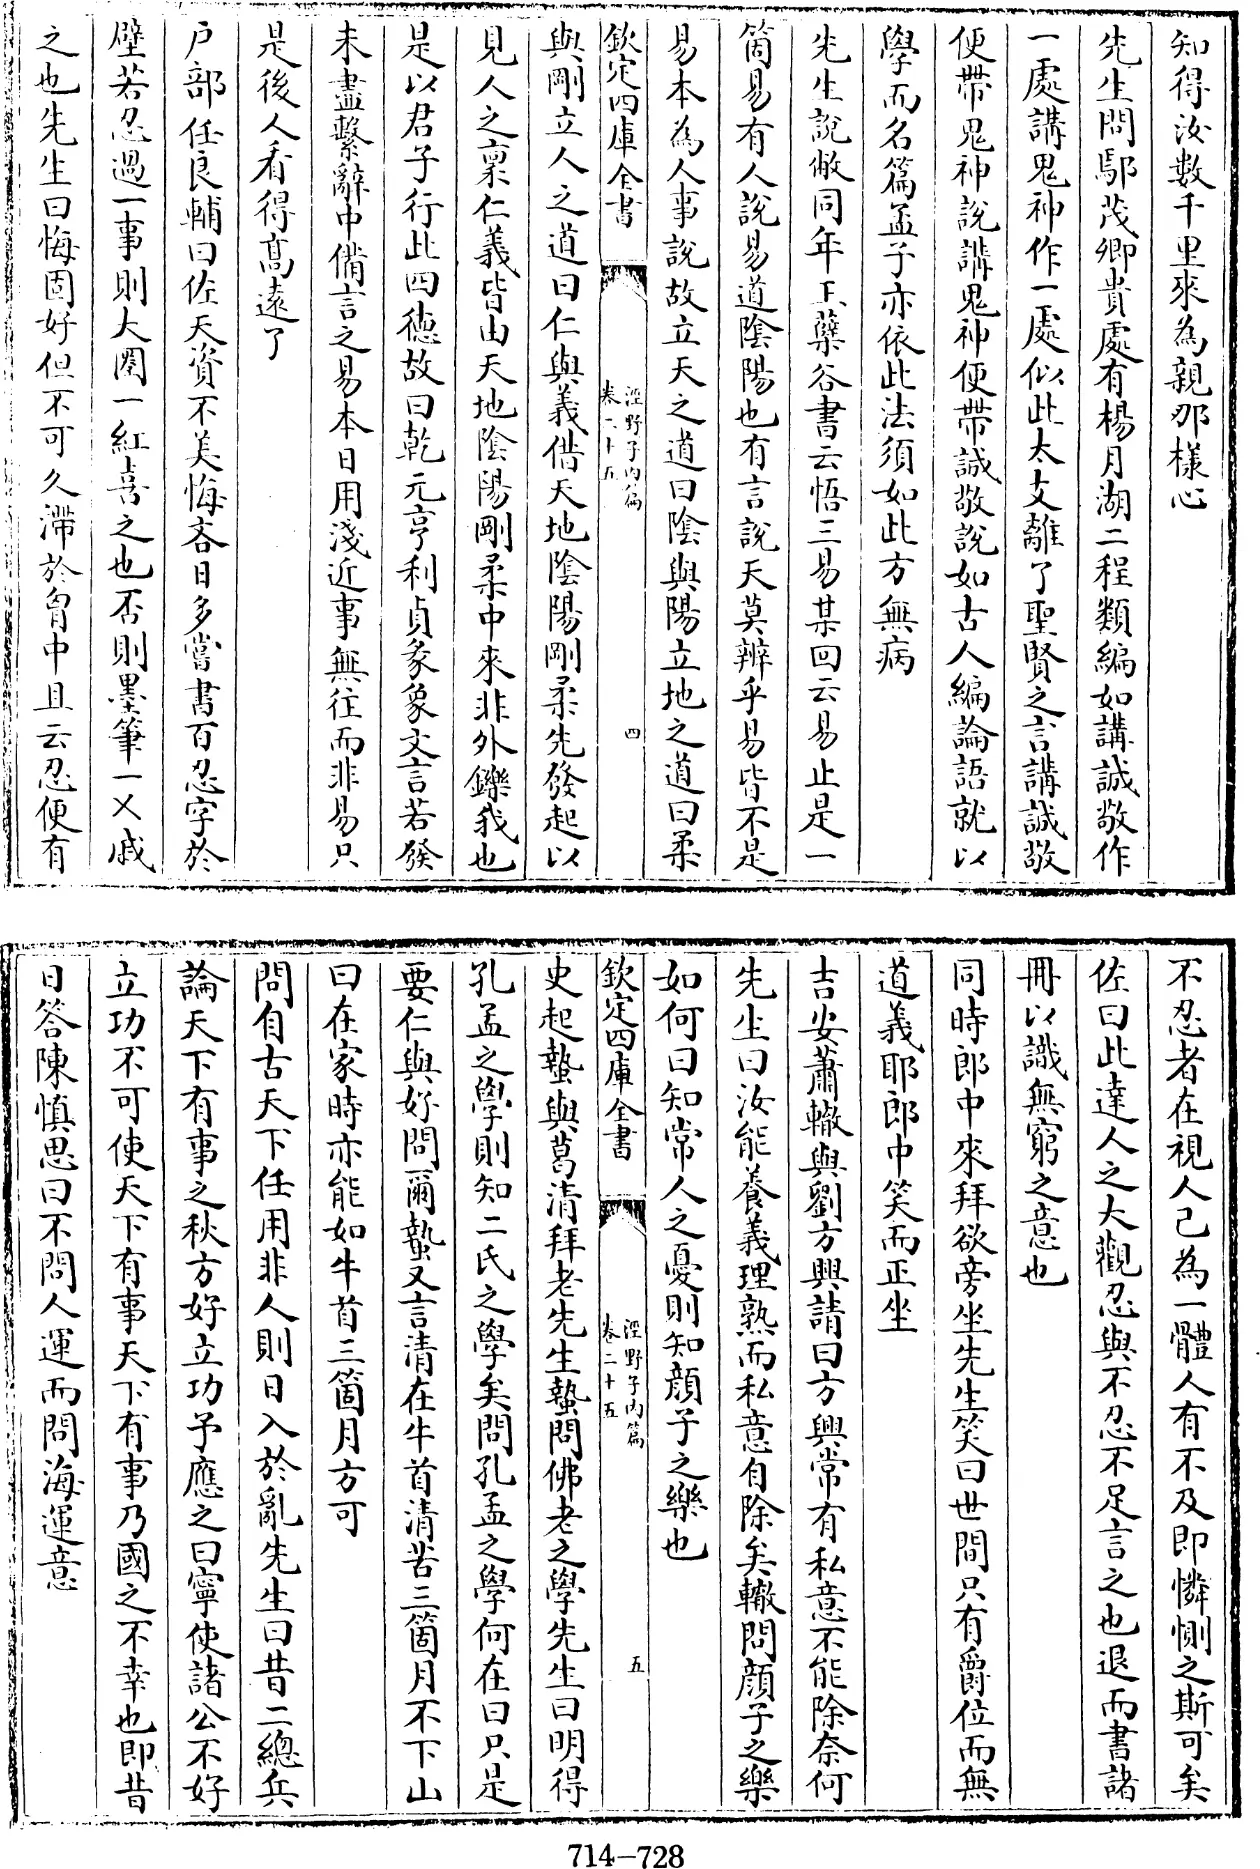 知得汝數千里來為親那樣心
先生問鄢茂卿貴處有楊月湖二程類編如講誠敬作
一處講鬼神作一處似此太支離了聖賢之言講誠敬
便帶鬼神說講鬼神便帶誠敬說如古人編論語就以
學而名篇孟子亦依此法須如此方無病
先生說敝同年王蘗谷書云悟三易某回云易止是一
箇易有人說易道陰陽也有言說天莫辨乎易皆不是
易本為人事說故立天之道曰陰與陽立地之道曰柔
欽定四庫全書
涇野子內篇
卷二十五
四
與剛立人之道曰仁與義借天地陰陽剛柔先發起以
見人之稟仁義皆由天地陰陽剛柔中來非外鑠我也
是以君子行此四德故曰乾元亨利貞彖象文言若發
未盡繫辭中備言之易本日用淺近事無往而非易只
是後人看得高遠了
户部任良輔曰佐天資不美悔吝日多嘗書百忍字於
壁若忍過一事則大圈一紅喜之也否則墨筆一乂戚
之也先生曰悔固好但不可久滯於胷中且云忍便有
不忍者在視人己為一體人有不及即憐惻之斯可矣
佐曰此達人之大觀忍與不忍不足言之也退而書諸
冊以識無窮之意也
同時郎中來拜欲旁坐先生笑曰世間只有爵位而無
道義耶郎中笑而正坐
吉安蕭轍與劉方興請曰方興常有私意不能除奈何
先生曰汝能養義理熟而私意自除矣轍問顔子之樂
如何曰知常人之憂則知顔子之樂也
欽定四庫全書
涇野子內篇
卷二十五
五
史起蟄與葛清拜老先生蟄問佛老之學先生曰明得
孔孟之學則知二氏之學矣問孔孟之學何在曰只是
要仁與好問爾蟄又言清在牛首清苦三箇月不下山
曰在家時亦能如牛首三箇月方可
問自古天下任用非人則日入於亂先生曰昔二總兵
論天下有事之秋方好立功予應之曰寧使諸公不好
立功不可使天下有事天下有事乃國之不幸也即昔
日答陳慎思曰不問人運而問海運意
714-728